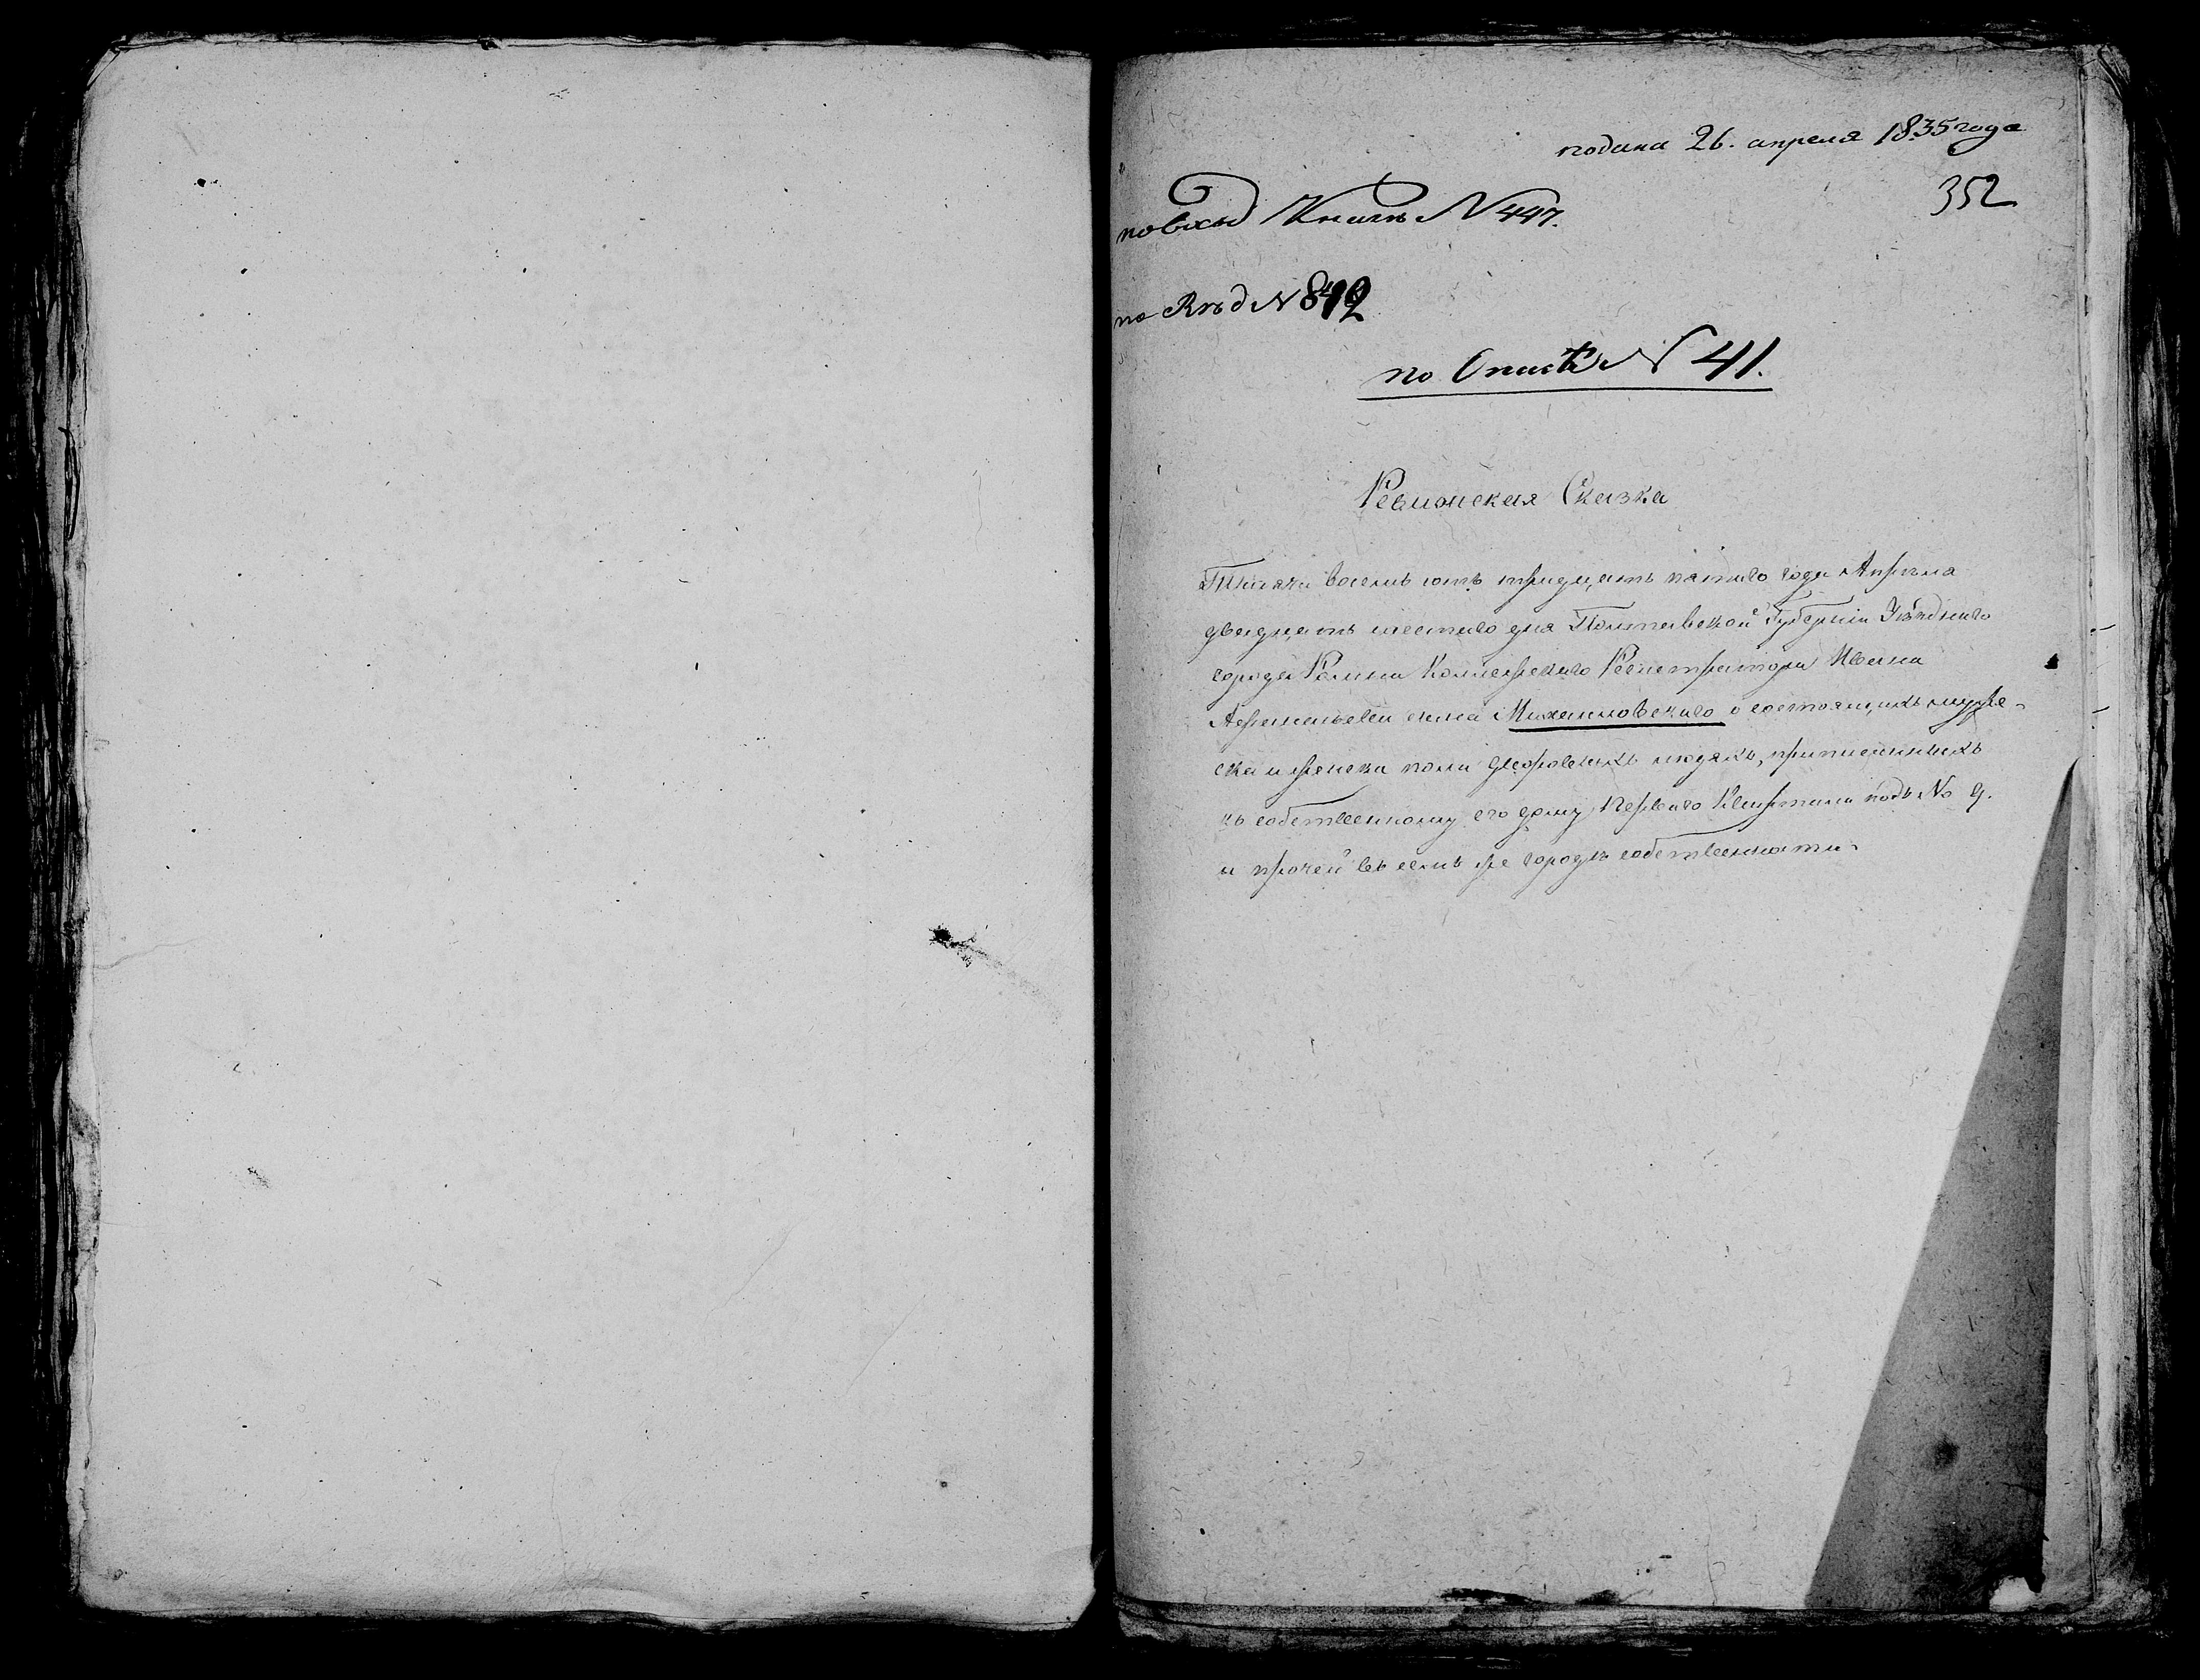 подана 26. апреля 1835 года
352
по вход Книгѣ N 447.
по N 842
по Описи N 41.
Ревизская Сказка
Тысяча восемь сотъ тридцать пятаго года Апрѣля
двадцать шестаго дня Полтавской Губерніи Уѣзднаго
города Ромна Коллежскаго Регистратора Ивана
Афанасьева сына Михайловскаго о состоящихъ муже-
ска и женска пола дворовыхъ людяхъ, приписанныхъ
къ собственному его дому первого Квартала подъ No 9.
и прочей въ семъ же городѣ собственности